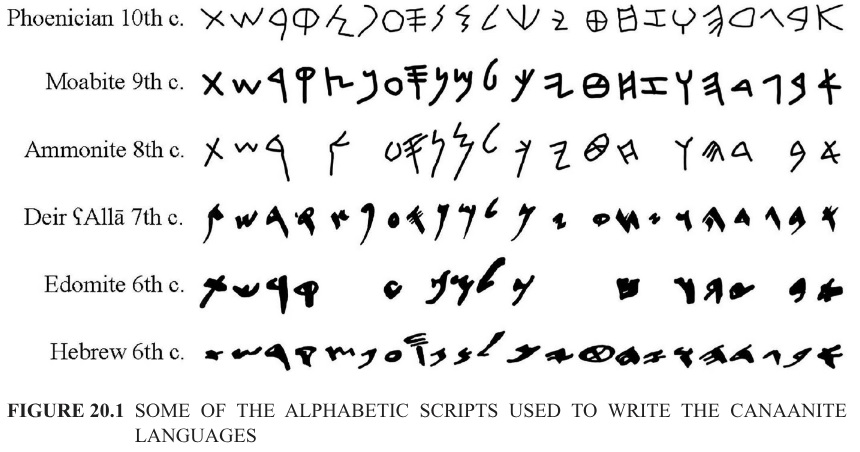 Phoenician 10th c. 𐤀 𐤁 𐤂 𐤃 𐤄 𐤅 𐤆 𐤇 𐤈 𐤉 𐤊 𐤋 𐤌 𐤍 𐤎 𐤏 𐤐 𐤑 𐤒 𐤓 𐤔 𐤕
Moabite 9th c. 𐤀 𐤁 𐤂 𐤃 𐤄 𐤅 𐤆 𐤇 𐤈 𐤉 𐤊 𐤋 𐤌 𐤍 𐤎 𐤏 𐤐 𐤑 𐤒 𐤓 𐤔 𐤕
Ammonite 8th c. 𐤀 𐤁 𐤃 𐤄 𐤅 𐤇 𐤈 𐤉 𐤊 𐤋 𐤌 𐤍 𐤎 𐤏 𐤑 𐤓 𐤔 𐤕
Deir ʕAllā 7th c. 𐤀 𐤁 𐤂 𐤃 𐤄 𐤅 𐤆 𐤇 𐤈 𐤉 𐤊 𐤋 𐤌 𐤍 𐤎 𐤏 𐤐 𐤑 𐤒 𐤓 𐤔 𐤕
Edomite 6th c. 𐤀 𐤁 𐤃 𐤄 𐤅 𐤇 𐤊 𐤋 𐤌 𐤍 𐤏 𐤒 𐤓 𐤔 𐤕
Hebrew 6th c. 𐤀 𐤁 𐤂 𐤃 𐤄 𐤅 𐤆 𐤇 𐤈 𐤉 𐤊 𐤋 𐤌 𐤍 𐤎 𐤏 𐤐 𐤑 𐤒 𐤓 𐤔 𐤕
FIGURE 20.1 SOME OF THE ALPHABETIC SCRIPTS USED TO WRITE THE CANAANITE
LANGUAGES